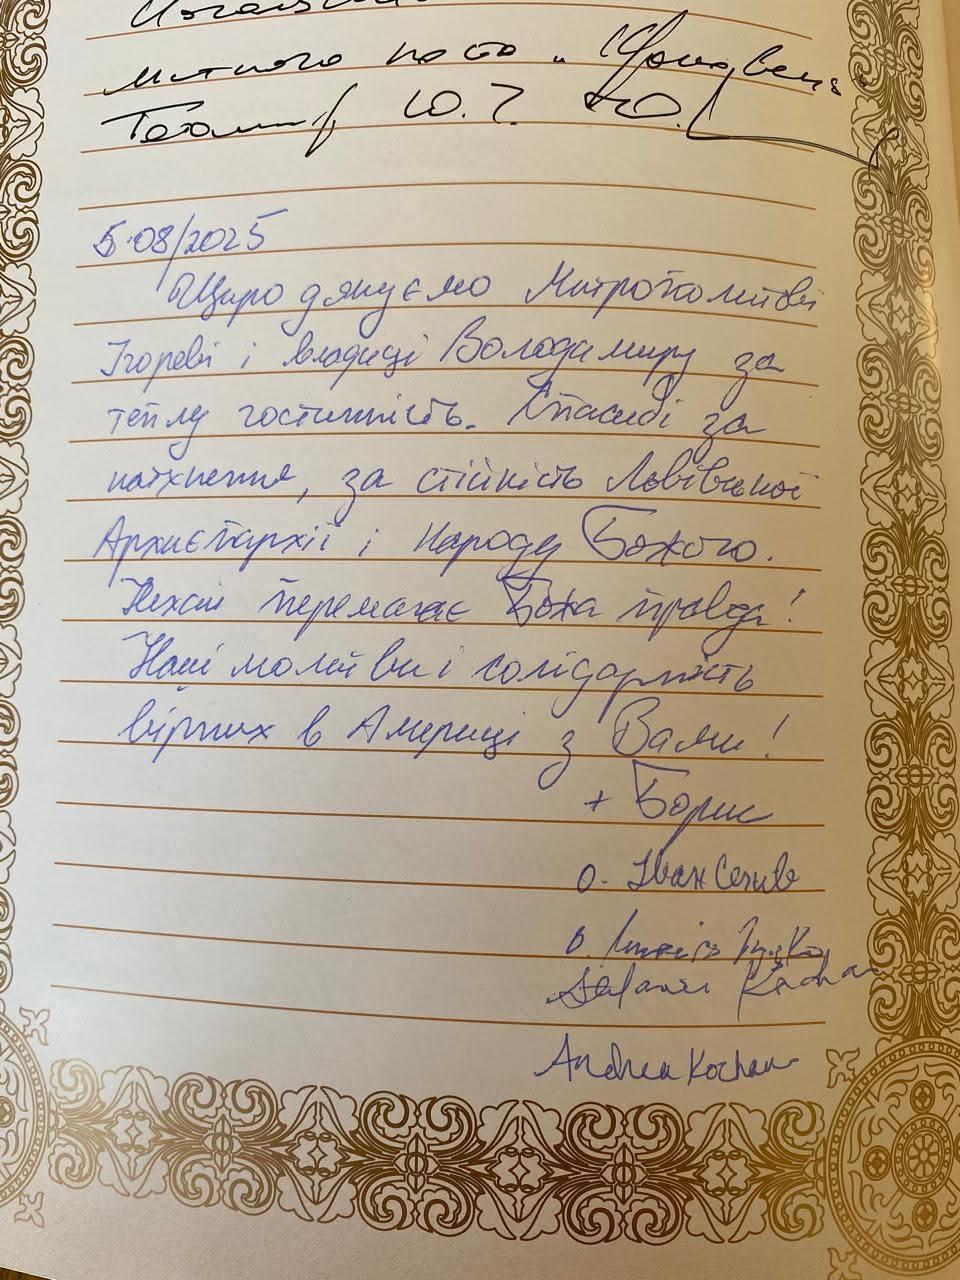 митного поста "
Ю.
5.08/2025
Щиро дякуємо Митрополитові
Ігореві і владиці Володимиру за
теплу гостинність. Спасибі за
натхнення, за стійкість Львівської
Архиєпархії і Народу Божого.
Нехай перемагає Божа правда!
Наші молитви і солідарність
вірних в Америці з Вами!
+ Борис
о. Іван
о.
Kochan
Andrea Kochan